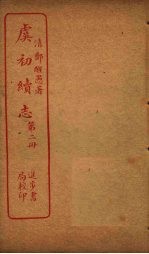 清鄭醒愚著
虞初續志
第二冊
進步書
局校印